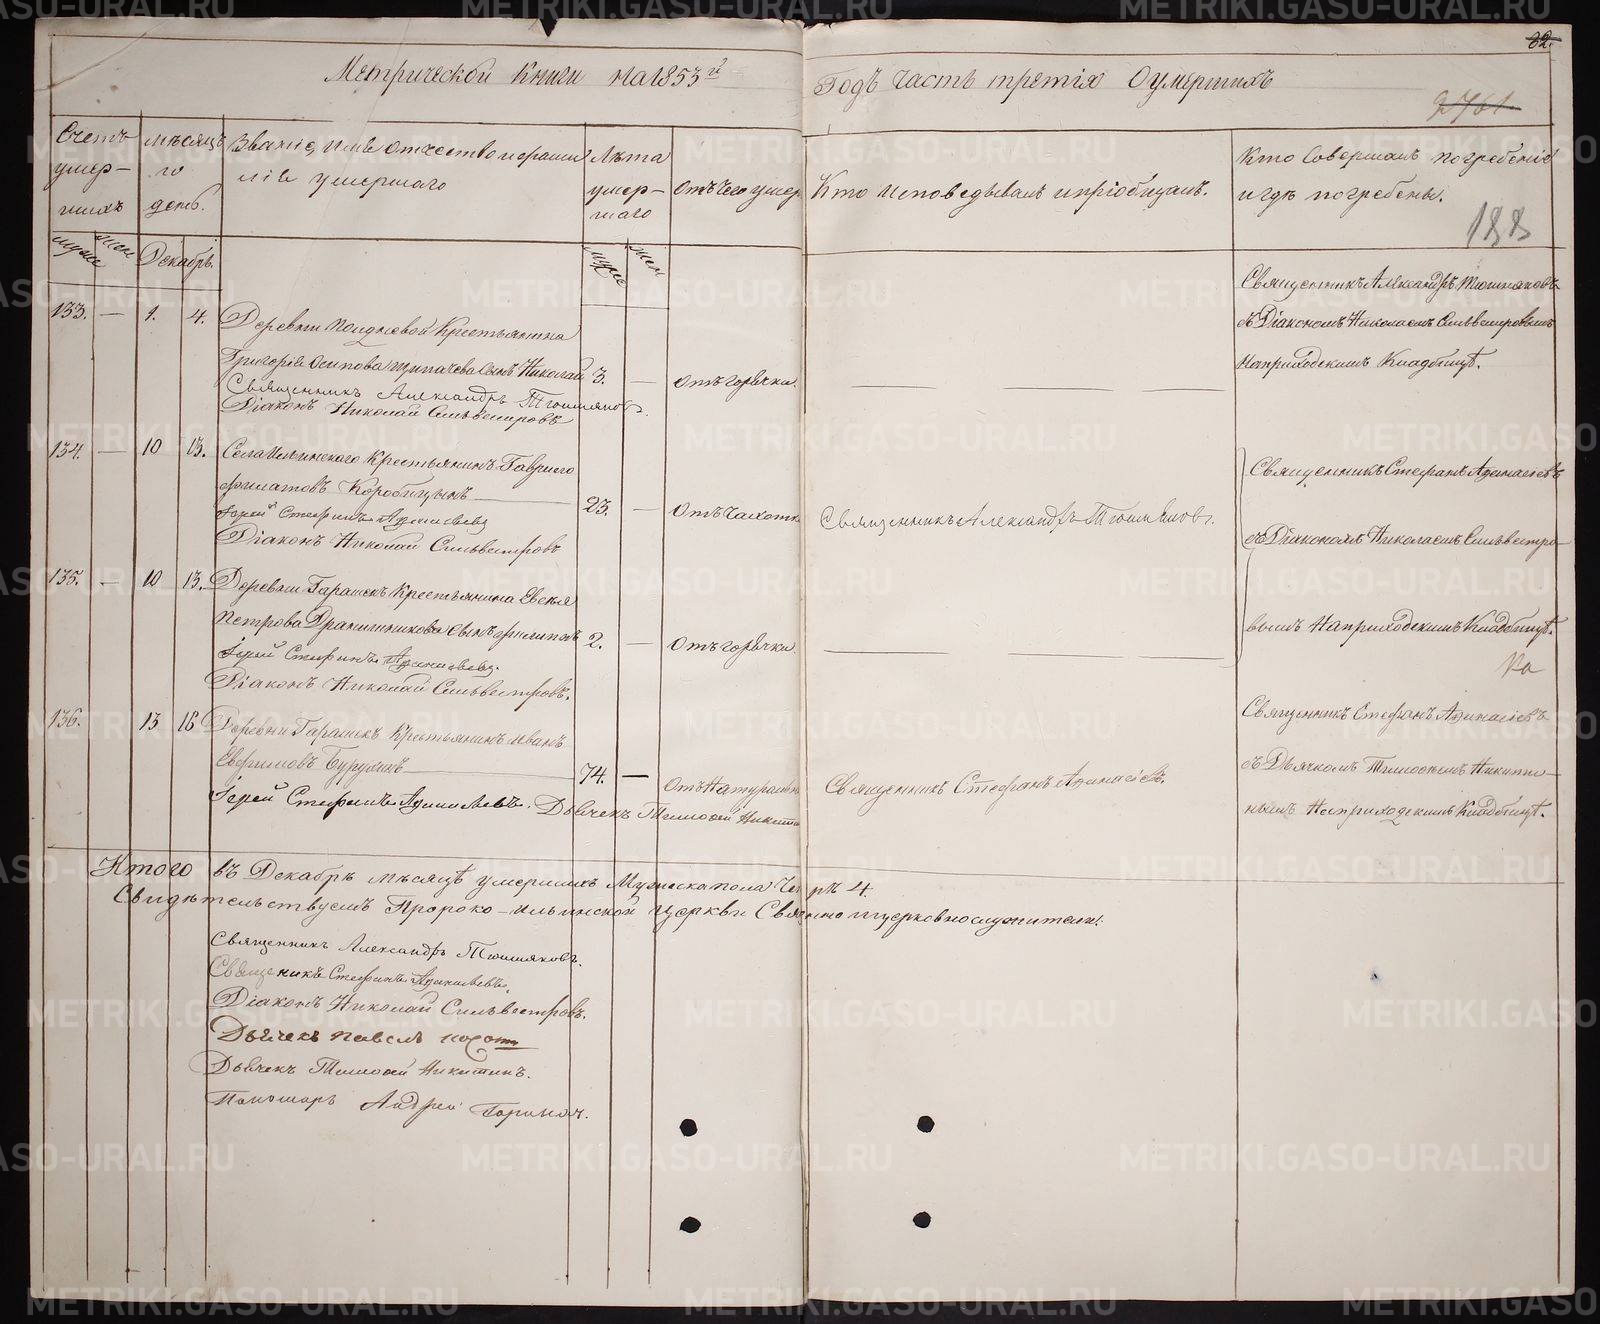 32.
Метрической Книги на 1853й
Годъ часть третія О умершихъ
2761
Счетъ умер-шихъ
муже
жен
мѣсяцъ и день.
Декабрь.
Званіе, имя отчество и фамилія умершаго
Лѣта умер-шаго
муже
жен
Отъ чего умер.
Кто исповѣдывалъ и пріобщалъ.
Кто Совершалъ погребеніе
и гдѣ погребены.
188
133. — 1. 4.
Деревни Крестьянина
Григорія Осипова Щипачева сынъ Николай 3. — Отъ горячки.
Священникъ Александръ Тюшняковъ.
Діаконъ Николай Сильвестровъ
Священникъ Александръ Тюшняковъ
съ Діакономъ Николаемъ Сильвестровымъ
На приходскимъ Кладбищѣ.
134. — 10 13.
Села Ильинскаго Крестьянинъ Гаврило
Филатовъ Коробицынъ 23. — Отъ чахотк
Іерей Стефанъ Аѳанасьевъ
Діаконъ Николай Сильвестровъ
Священникъ Александръ Тюшняковъ.
Священникъ Стефанъ Аѳанасіевъ
съ Діакономъ Николаемъ Сильвестро-
вымъ На приходскимъ Кладбищѣ.
135. — 10 13.
Деревни Гарашекъ Крестьянина Евсея
Петрова Дранишникова сынъ Филиппъ 2. — Отъ горячки.
Іерей Стефанъ Аѳанасьевъ.
Діаконъ Николай Сильвестровъ.
136. 13 16
Деревни Гарашекъ Крестьянинъ Иванъ
Евфимовъ Бурухинъ 74. — Отъ Натуральн
Іерей Стефанъ Аѳанасьевъ. Дьячекъ Тимоѳей Никитин
Священникъ Стефанъ Аѳанасіевъ.
Священникъ Стефанъ Аѳанасіевъ
съ Дьячкомъ Тимоѳеемъ Никити-
нымъ На приходскимъ Кладбищѣ.
Итого въ Декабрѣ мѣсяцѣ умершихъ Мужеска пола Четыре 4.
Свидѣтельствуемъ Пророко-Ильинской Церкви Священно и церковнослужители:
Священникъ Александръ Тюшняковъ.
Священикъ Стефанъ Аѳанасьевъ.
Діаконъ Николай Сильвестровъ.
Дьячекъ Павелъ
Дьячекъ Тимоѳей Никитинъ.
Пономарь Андрей
METRIKI.GASO-URAL.RU